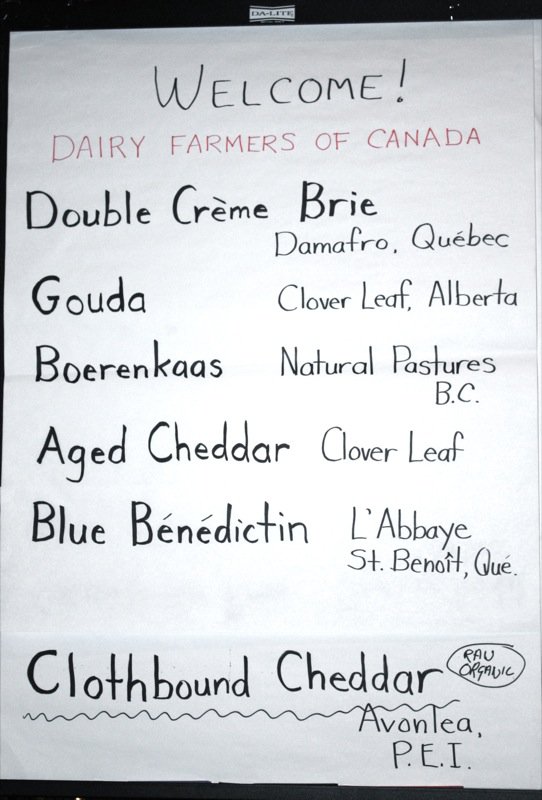 DA-LITE
WELCOME!
DAIRY FARMERS OF CANADA
Double Crème Brie
Damafro, Québec
Gouda Clover Leaf, Alberta
Boerenkaas Natural Pastures
B.C.
Aged Cheddar Clover Leaf
Blue Bénédictin L'Abbaye
St. Benoît, Qué.
Clothbound Cheddar RAW
ORGANIC
Avonlea,
P.E.I.